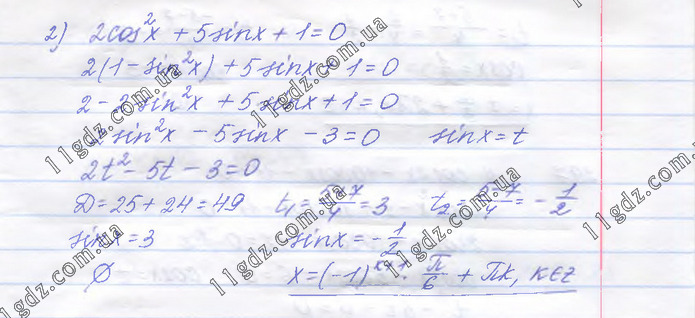 2) 2cos²x + 5sinx + 1 = 0
2(1 - sin²x) + 5sinx + 1 = 0
2 - 2sin²x + 5sinx + 1 = 0
2sin²x - 5sinx - 3 = 0 sinx = t
2t² - 5t - 3 = 0
D = 25 + 24 = 49 t₁ = (5+7)/4 = 3 t₂ = (5-7)/4 = -1/2
sinx = 3 sinx = -1/2
∅ x = (-1)^(k+1) · π/6 + πk, k∈z
11gdz.com.ua
11gdz.com.ua
11gdz.com.ua
11gdz.com.ua
11gdz.com.ua
11gdz.com.ua
11gdz.com.ua